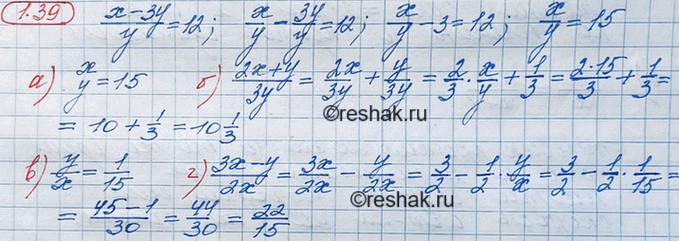 1.39 (x-3y)/y=12; x/y - 3y/y=12; x/y - 3=12; x/y=15
а) x/y=15 б) (2x+y)/3y = 2x/3y + y/3y = 2/3 · x/y + 1/3 = 2·15/3 + 1/3 =
= 10 + 1/3 = 10 1/3
©reshak.ru
в) y/x = 1/15 г) (3x-y)/2x = 3x/2x - y/2x = 3/2 - 1/2 · y/x = 3/2 - 1/2 · 1/15 =
= (45-1)/30 = 44/30 = 22/15